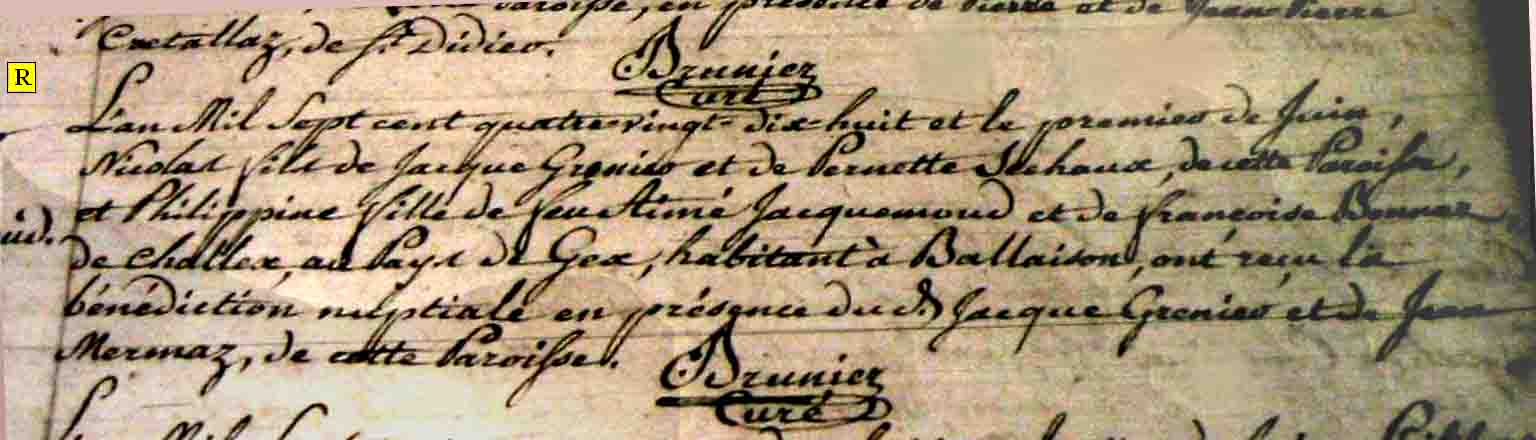 paroisse, en présence de Pierre et de Jean Pierre
Cretallaz, de St Didier.
Brunier
Curé
R
L'an Mil Sept cent quatre-vingt-dix-huit et le premier de Juin,
Nicolas fils de Jacque Grenier et de Pernette Sechaux, de cette Paroisse,
et Philippine fille de feu Aimé Jacquemoud et de françoise
ud.
de Challex, au Pays de Gex, habitant à Ballaison, ont reçu la
bénédiction nuptiale en présence du d. Jacque Grenier et de Jean
Mermaz, de cette Paroisse.
Brunier
Curé